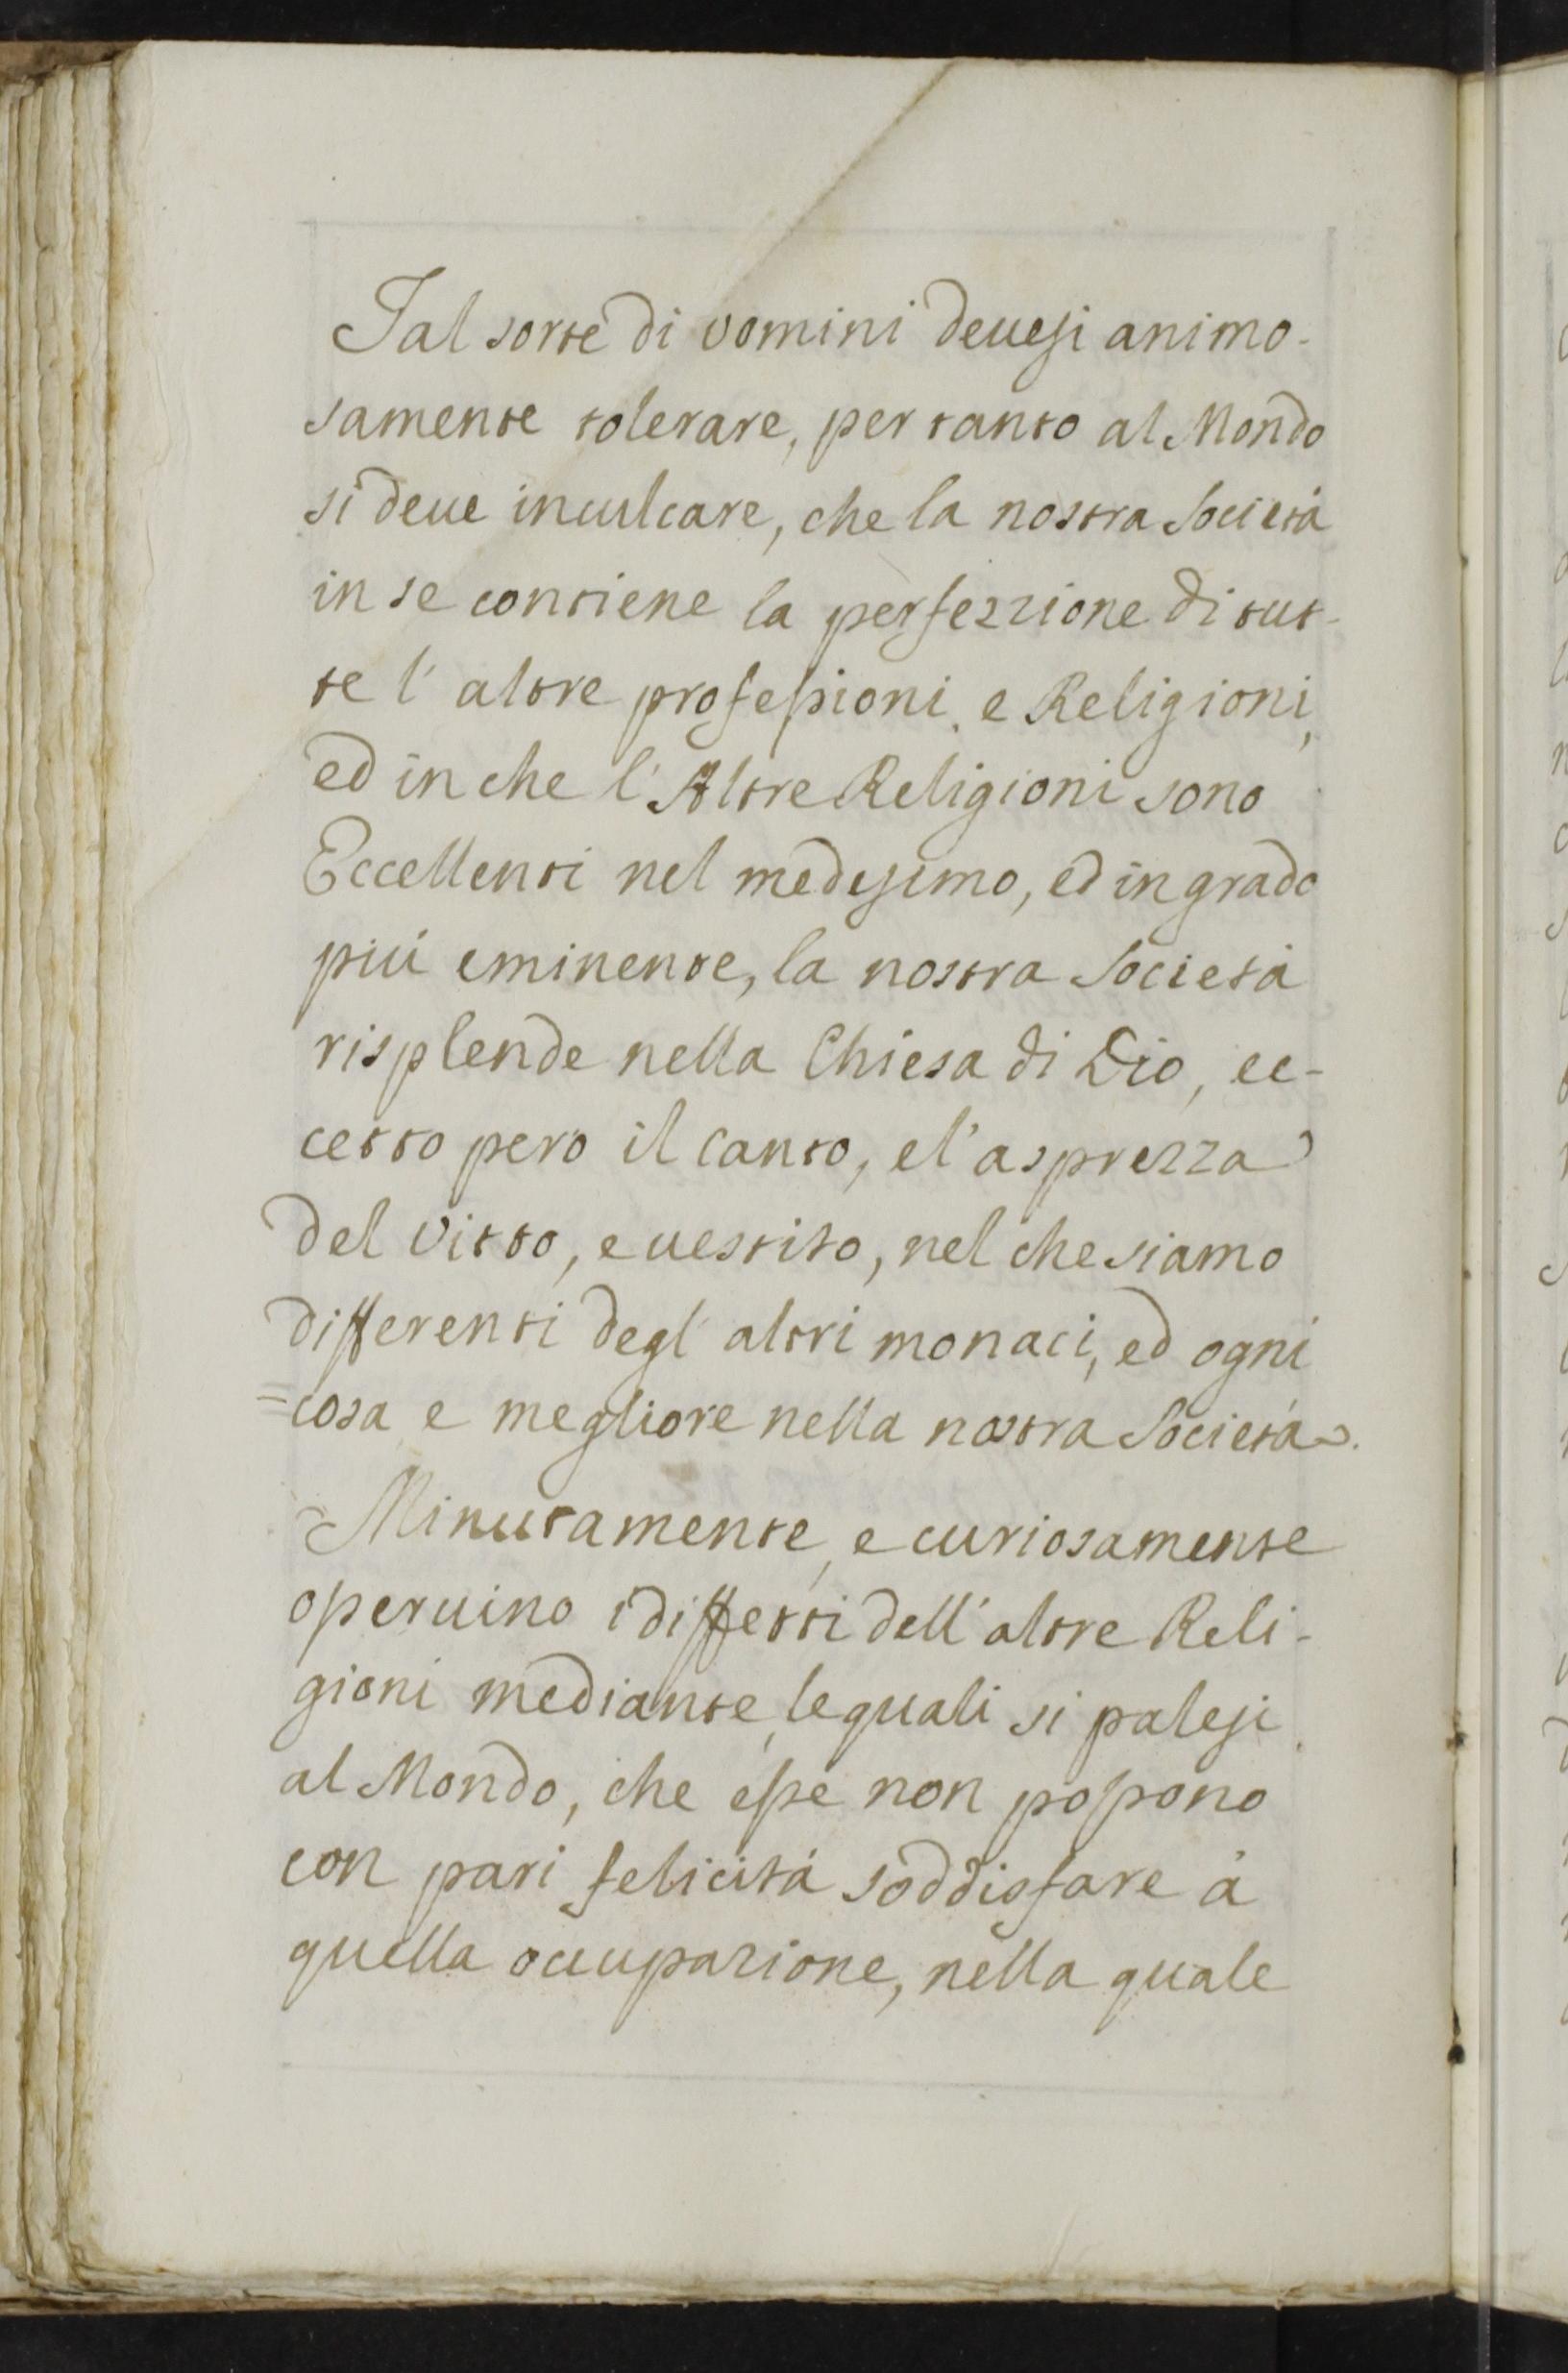 Tal sorte di vomini deuesi animo-
samente tolerare, per tanto al Mondo
si deue inculcare, che la nostra Società
in se contiene la perfezzione di tut-
te l' altre professioni, e Religioni,
ed in che l' Altre Religioni sono
Eccellenti nel medesimo, ed in grado
più eminente, la nostra Società
risplende nella Chiesa di Dio, ec-
cetto però il Canto, e l' asprezza
del vitto, e uestito, nel che siamo
differenti degl' altri monaci, ed ogni
=cosa e megliore nella nostra Società.
Minutamente, e curiosamente
operuino i diffetti dell' altre Reli-
gioni mediante, le quali si palesi
al Mondo, che esse non possono
con pari felicità soddisfare à
quella occupazione, nella quale